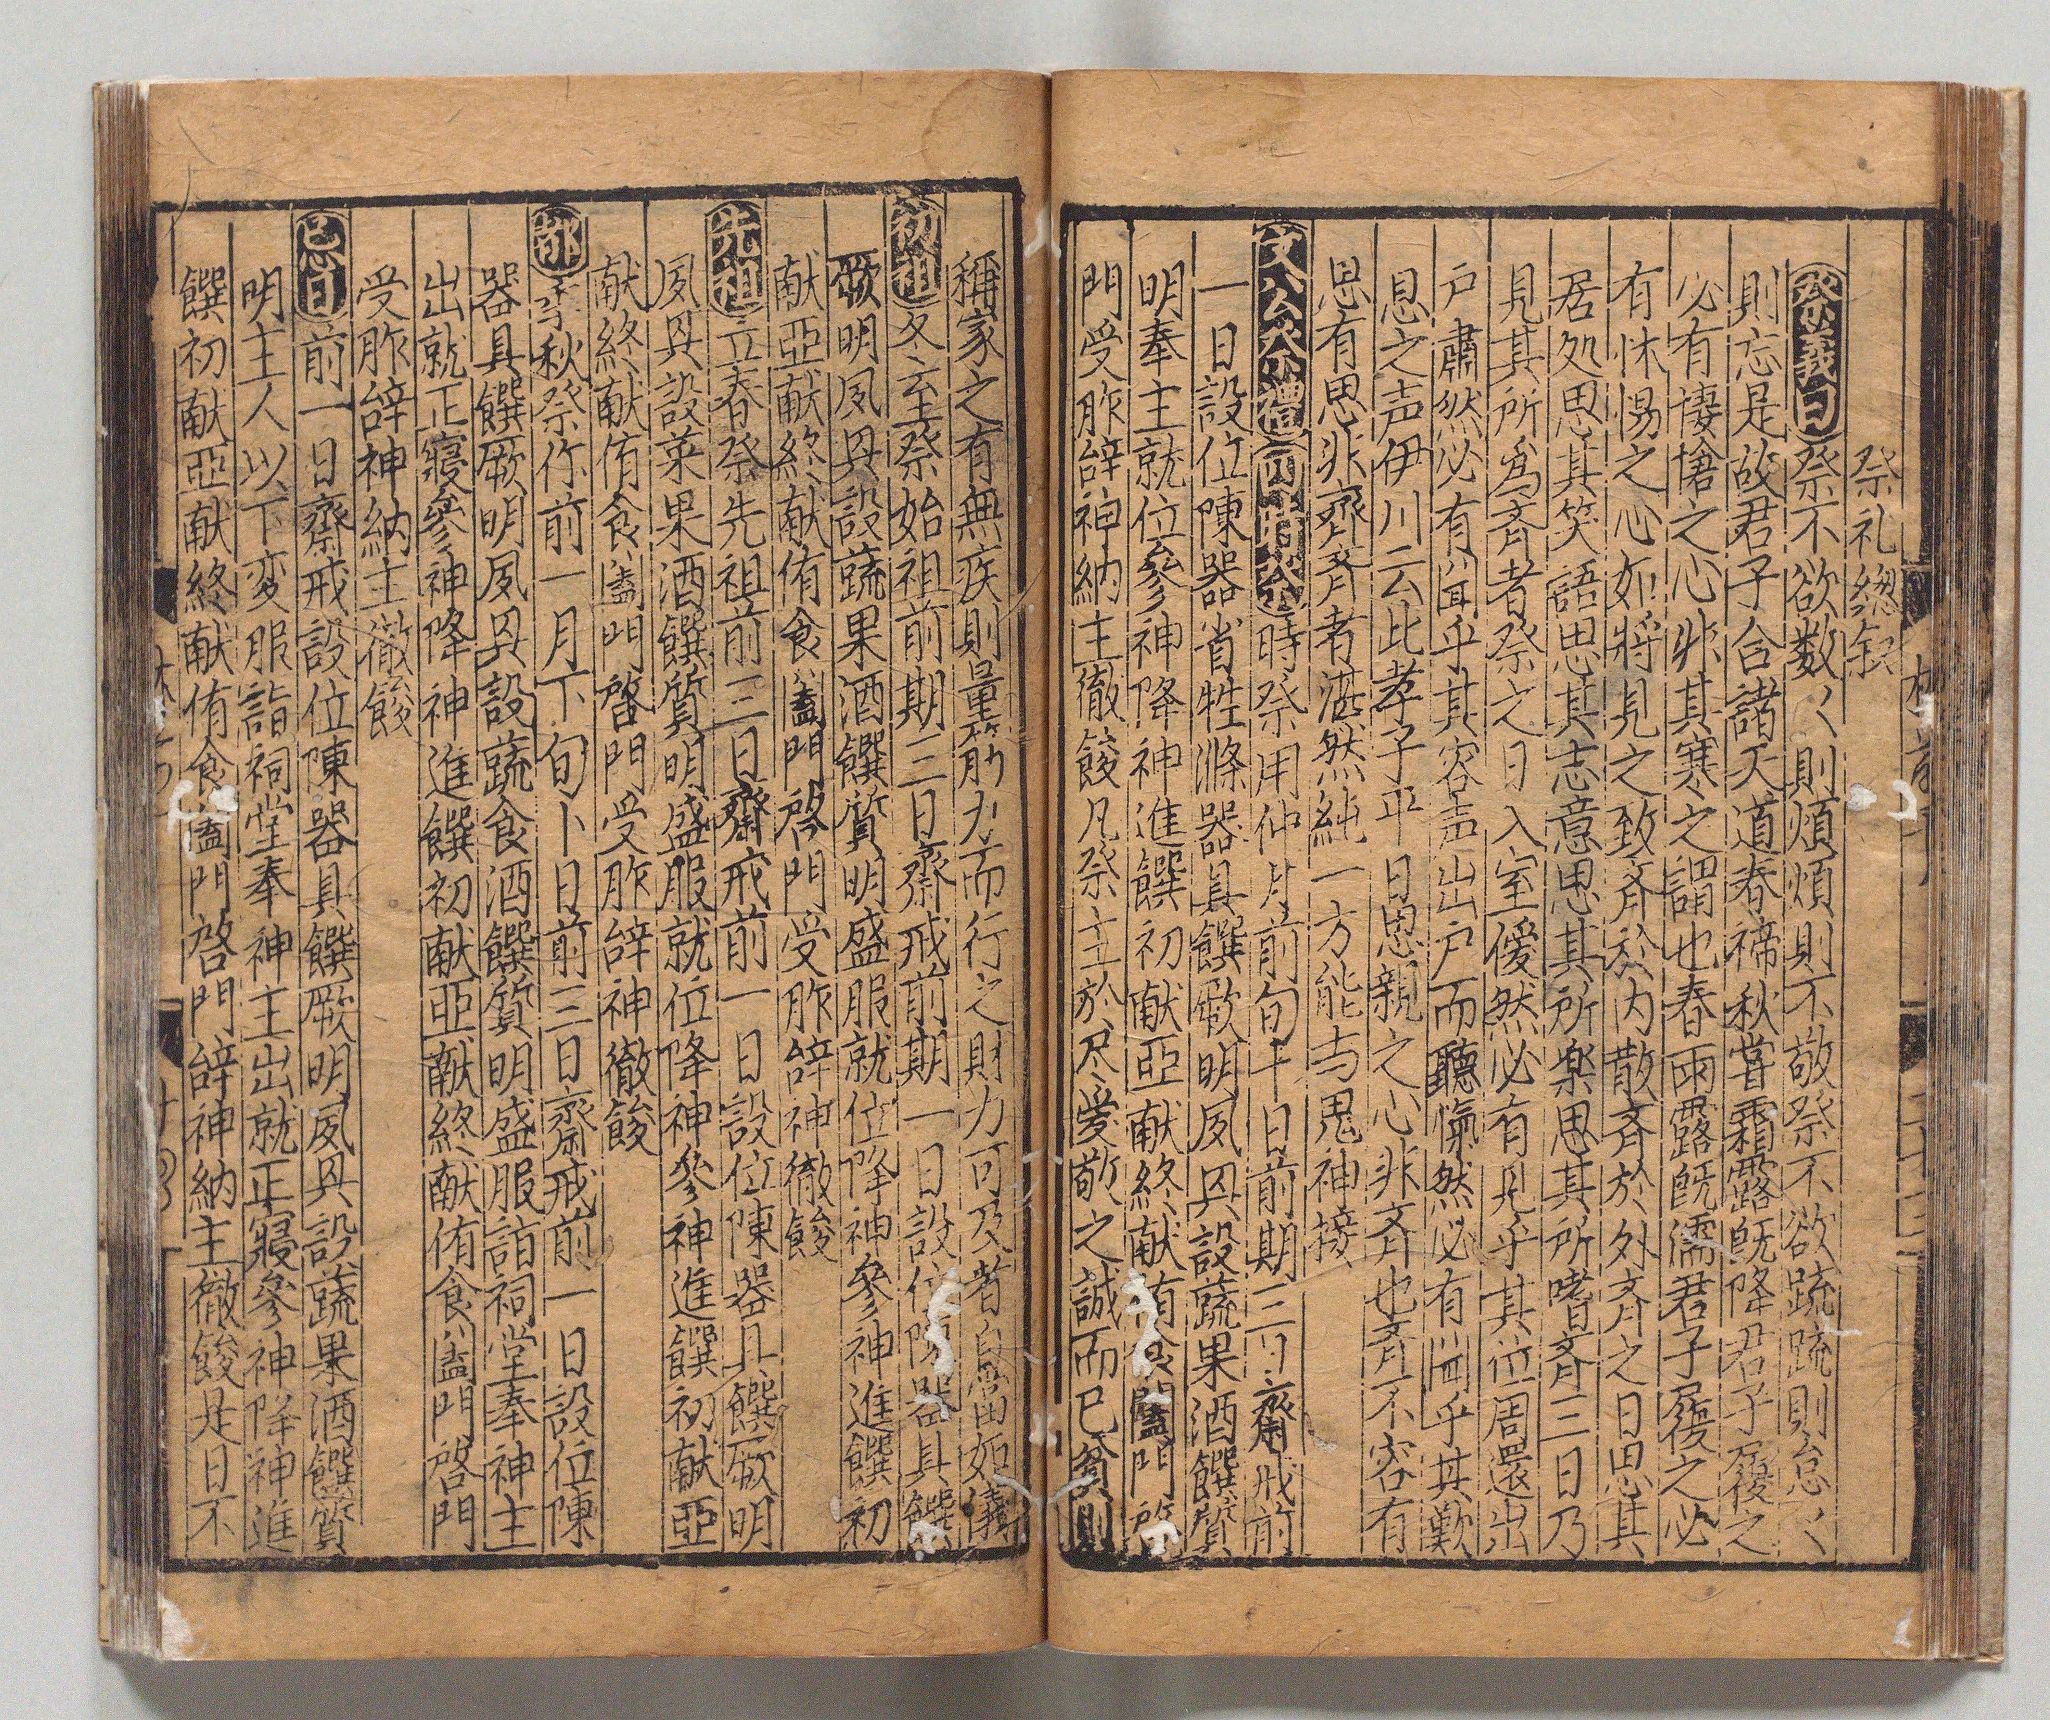 祭礼総叙
祭義曰祭不欲数〻則煩煩則不敬祭不欲疏疏則怠〻
則忘是故君子合諸天道春禘秋甞霜露旣降君子履之
必有悽愴之心非其寒之謂也春雨露旣濡君子履之必
有怵惕之心如將見之致斉於内散斉於外斉之日思其
居処思其笑語思其志意思其所楽思其所嗜斉三日乃
見其所爲斉者祭之日入室僾然必有見乎其位周還出
戶肅然必有聞乎其容声出戶而聽愾然必有聞乎其歎
息之声伊川云此孝子平日思親之心非斉也斉不容有
思有思非齊斉者湛然純一方能与鬼神接
文公祭禮四時祭時祭用仲月前旬卜日前期三日齋戒前
一日設位陳器省牲滌器具饌厥明夙具設蔬果酒饌質
明奉主就位參神降神進饌初献亞献終献侑食闔門啓
門受胙辞神納主徹餕凡祭主於尽愛敬之誠而已貧則
稱家之有無疾則量筋力而行之財力可及者自當如儀
初祖冬至祭始祖前期三日齋戒前期一日設位陳器具饌
厥明夙具設蔬果酒饌質明盛服就位降神參神進饌初
献亞献終献侑食闔門啓門受胙辞神徹餕
先祖立春祭先祖前三日齋戒前一日設位陳器具饌厥明
夙具設菜果酒饌質明盛服就位降神參神進饌初献亞
献終献侑食闔門啓門受胙辞神徹餕
祢季秋祭祢前一月下旬卜日前三日齋戒前一日設位陳
器具饌厥明夙具設蔬食酒饌質明盛服詣祠堂奉神主
出就正寢參神降神進饌初献亞献終献侑食闔門啓門
受胙辞神納主徹餕
忌日前一日齋戒設位陳器具饌厥明夙具設蔬果酒饌質
明主人以下変服詣祠堂奉神主出就正寢參神降神進
饌初献亞献終献侑食闔門啓門辞神納主徹餕是日不